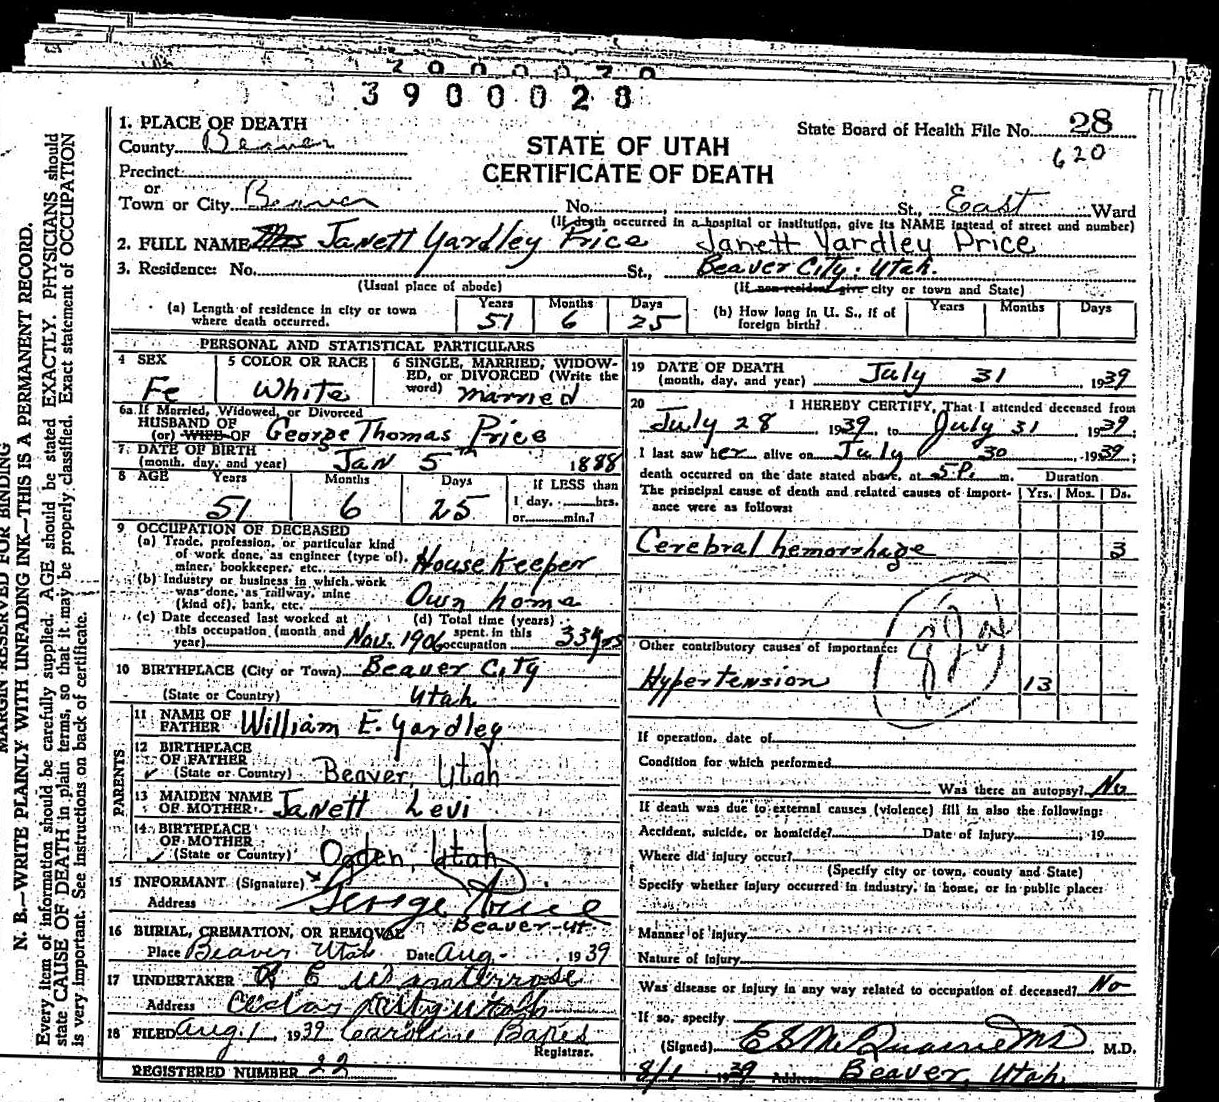 3900028
1. PLACE OF DEATH
County Beaver
State Board of Health File No. 28
620
STATE OF UTAH
CERTIFICATE OF DEATH
Precinct
or
Town or City Beaver No. St., East Ward
(If death occurred in a hospital or institution, give its NAME instead of street and number)
2. FULL NAME Mrs Janett Yardley Price Janett Yardley Price
3. Residence: No. St., Beaver City, Utah.
(Usual place of abode) (If non-resident give city or town and State)
(a) Length of residence in city or town where death occurred. Years 51 Months 6 Days 25
(b) How long in U. S., if of foreign birth? Years Months Days
PERSONAL AND STATISTICAL PARTICULARS
4 SEX Fe
5 COLOR OR RACE White
6 SINGLE, MARRIED, WIDOWED, or DIVORCED (Write the word) married
6a. If Married, Widowed, or Divorced
HUSBAND OF
(or) WIFE OF George Thomas Price
7 DATE OF BIRTH
(month, day, and year) Jan 5th 1888
8 AGE Years 51 Months 6 Days 25
If LESS than
1 day, hrs.
or min.?
9 OCCUPATION OF DECEASED
(a) Trade, profession, or particular kind
of work done, as engineer (type of),
miner, bookkeeper, etc. House Keeper
(b) Industry or business in which work
was done, as railway, mine
(kind of), bank, etc. Own home
(c) Date deceased last worked at
this occupation (month and
year) Nov. 1906
(d) Total time (years)
spent in this
occupation 33 yrs
10 BIRTHPLACE (City or Town) Beaver City
(State or Country) Utah
PARENTS
11 NAME OF
FATHER William E. Yardley
12 BIRTHPLACE
OF FATHER
(State or Country) Beaver, Utah
13 MAIDEN NAME
OF MOTHER Janett Levi
14 BIRTHPLACE
OF MOTHER
(State or Country) Ogden, Utah
15 INFORMANT (Signature) George Price
Address Beaver-Ut.
16 BURIAL, CREMATION, OR REMOVAL
Place Beaver Utah Date Aug. 1939
17 UNDERTAKER
Address Cedar City Utah
18 FILED Aug. 1 1939 Caroline
Registrar.
REGISTERED NUMBER 22
19 DATE OF DEATH
(month, day, and year) July 31, 1939
20 I HEREBY CERTIFY, That I attended deceased from
July 28 1939, to July 31 1939;
I last saw her alive on July 30 1939;
death occurred on the date stated above, at 5 P. m.
The principal cause of death and related causes of importance were as follows:
Duration
Yrs. Mos. Ds.
Cerebral hemorrhage 3
Other contributory causes of importance:
Hypertension 13
If operation, date of
Condition for which performed
Was there an autopsy? No
If death was due to external causes (violence) fill in also the following:
Accident, suicide, or homicide? Date of Injury 19
Where did injury occur?
(Specify city or town, county and State)
Specify whether injury occurred in industry, in home, or in public place:
Manner of injury
Nature of injury
Was disease or injury in any way related to occupation of deceased? No
If so, specify
(Signed) M.D.
8/1 1939 Address Beaver, Utah
MARGIN RESERVED FOR BINDING
N. B.—WRITE PLAINLY WITH UNFADING INK—THIS IS A PERMANENT RECORD.
Every item of information should be carefully supplied. AGE should be stated EXACTLY. PHYSICIANS should
state CAUSE OF DEATH in plain terms, so that it may be properly classified. Exact statement of OCCUPATION
is very important. See instructions on back of certificate.